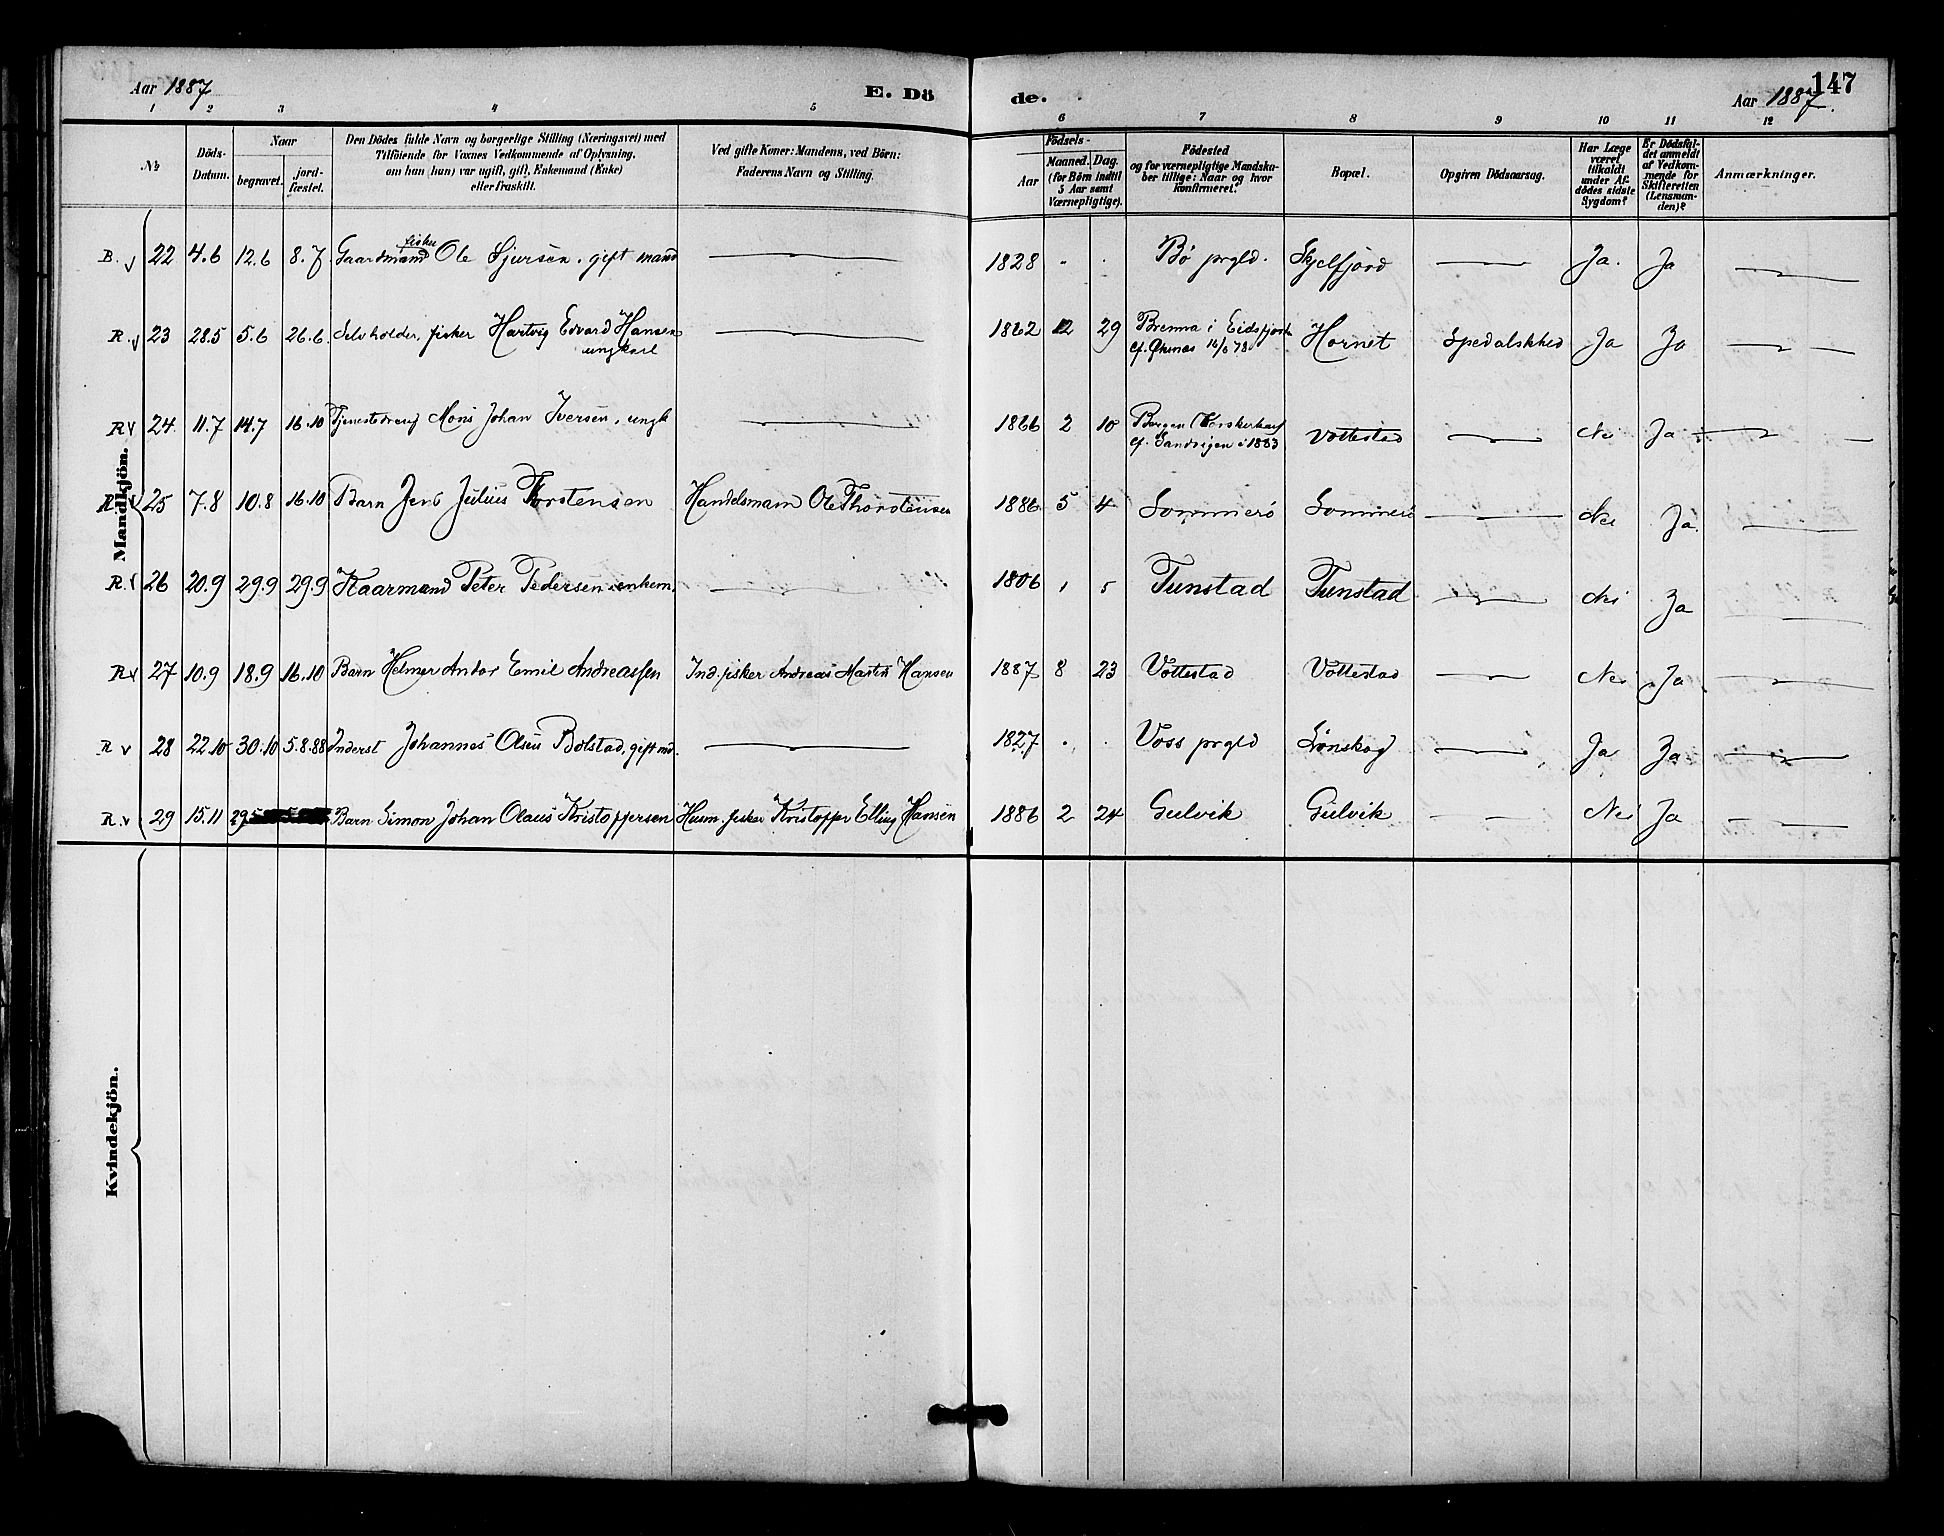 Aar 1887 E. Dö de. Aar 1887. 147
1 2 3 4 5 6 7 8 9 10 11 12
No
Döds-Datum.
Naar
begravet. jordfæstet.
Den Dödes fulde Navn og borgerlige Stilling (Næringsvei) med
Tilföiende for Voxnes Vedkommende af Oplysning,
om han (hun) var ugift, gift, Enkemand (Enke)
eller fraskilt.
Ved gifte Koner: Mandens, ved Börn:
Faderens Navn og Stilling.
Födsels-
Aar
Maaned. Dag.
(for Börn indtil
5 Aar samt
Værnepligtige).
Födested
og for værnepligtige Mandska-
ber tillige: Naar og hvor
konfirmeret?
Bopæl.
Opgiven Dödsaarsag.
Har Læge
været
tilkaldt
under Af-
dödes sidste
Sygdom?
Er Dödsfal-
det anmeldt
af Vedkom-
mende for
Skifteretten
(Lensman-
den)?
Anmærkninger.
Mandkjön.
B. v 22 4.6 12.6 8.7 Gaardmand fisker Ole Sjursen. gift mand 1828 Bø prgld. Skjelfjord Ja. Ja
R. v 23 28.5 5.6 26.6 Selvholder, fisker Hartvig Edvard Hansen 1862 12 29 Brenna i Eidsfjord Hornet Spedalskhed Ja Ja
ungkarl cf. Øksnes 16/6 78
R v 24 11.7 14.7 16.10 Tjenestedreng Mons Johan Iversen, ungk 1866 2 10 Bergen Vottestad Nei Ja
cf. Sandvigen i 1883
R. v 25 7.8 10.8 16.10 Barn Jens Julius Thorstensen Handelsmann Ole Thorstensen 1886 5 4 Sommerø Sommerø Nei Ja.
R. v 26 20.9 29.9 29.9 Kaarmand Peter Pedersen enkem. 1806 1 5 Tunstad Tunstad Nei Ja
R v 27 10.9 18.9 16.10 Barn Helmer Antor Emil Andreassen Ind. fisker Andreas Martin Hansen 1887 8 23 Vottestad Vottestad Nei Ja
R v 28 22.10 30.10 5.8.88 Inderst Johannes Olsen Bolstad, gift md. 1827 Voss prgld Lønskog Ja Ja
R. v 29 15.11 29. Barn Simon Johan Olaus Kristoffersen Husm. fisker Kristoffer Elling Hansen 1886 2 24 Gulvik Gulvik Nei Ja
Kvindekjön.